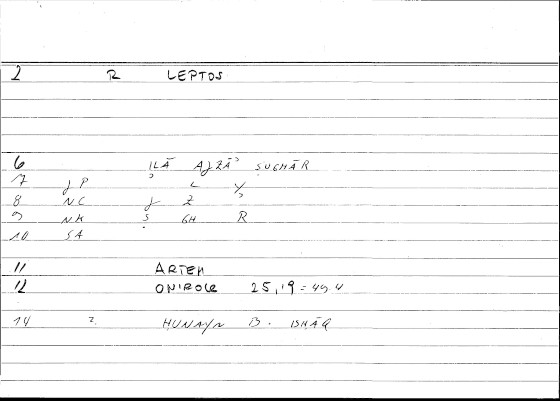 2 R LEPTOS
6 ILĀ AJZĀʾ ṢUGHĀR
7 JP ʾ L Y
8 NC J Z ʾ
9 NM Ṣ GH R
10 SA
11 ARTEM
12 ONIROCR 25,19 = 49,4
14 2 HUNAYN B. ISHĀQ